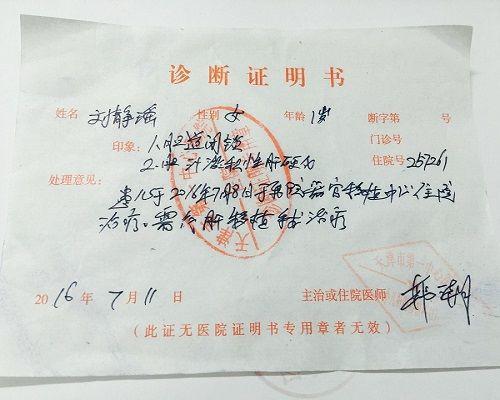 诊断证明书
姓名 刘静瑶 性别 女 年龄 1岁 断字第 号
印象: 1.胆道闭锁 门诊号
2.胆汁淤积性肝硬化 住院号 257261
处理意见:
患儿于2016年7月8日于我院器官移植中心住院
治疗。需行肝移植手术治疗
2016年7月11日 主治或住院医师
(此证无医院证明书专用章者无效)